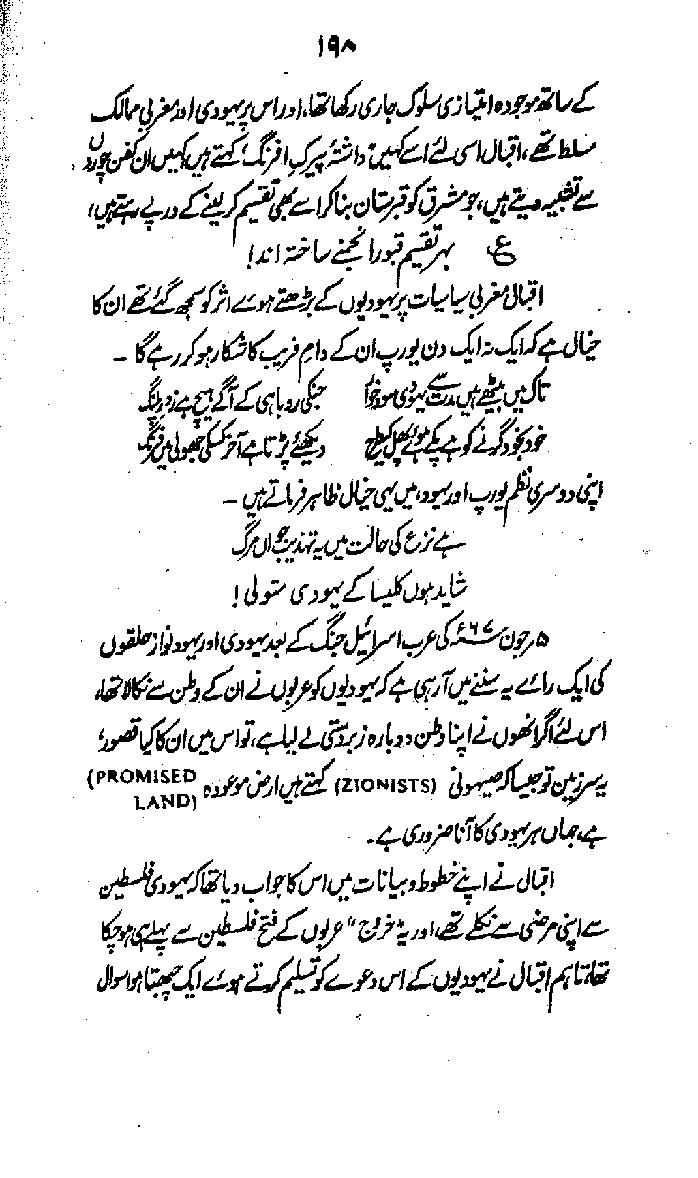 ۱۹۸
کے ساتھ موجودہ امتیازی سلوک جاری رکھا تھا، اور اس پر یہودی اور مغربی ممالک
مسلط تھے، اقبال اسی لئے اسے کہیں "داشتۂ پیرک افرنگ" کہتے ہیں، کہیں ان کفن چوروں
سے تشبیہ دیتے ہیں، جو مشرق کو قبرستان بنا کر اسے بھی تقسیم کر لینے کے درپے رہتے ہیں،
ع بہر تقسیم قبور انجمنے ساختہ اند!
اقبال مغربی سیاسیات پر یہودیوں کے بڑھتے ہوئے اثر کو سمجھ گئے تھے ان کا
خیال ہے کہ ایک نہ ایک دن یورپ ان کے دامِ فریب کا شکار ہو کر رہے گا –
تاک میں بیٹھے ہیں مدت سے یہودی سود خوار جنکی روباہی کے آگے ہیچ ہے زورِ پلنگ
خود بخود گرنے کو ہے پکے ہوئے پھل کی طرح دیکھئے پڑتا ہے آخر کس کی جھولی میں فرنگ
اپنی دوسری نظم یورپ اور یہود، میں یہی خیال ظاہر فرماتے ہیں –
ہے نزع کی حالت میں یہ تہذیب جواں مرگ
شاید ہوں کلیسا کے یہودی متولی!
۵ر جون ۶۷ء کی عرب اسرائیل جنگ کے بعد یہودی اور یہود نواز حلقوں
کی ایک رائے یہ سننے میں آ رہی ہے کہ یہودیوں کو عربوں نے ان کے وطن سے نکالا تھا،
اس لئے اگر انھوں نے اپنا وطن دوبارہ زبردستی لے لیا ہے، تو اس میں ان کا کیا قصور؛
یہ سرزمین تو جیسا کہ صیہونی (ZIONISTS) کہتے ہیں ارض موعودہ (PROMISED LAND)
ہے، جہاں ہر یہودی کا آنا ضروری ہے۔
اقبال نے اپنے خطوط و بیانات میں اس کا جواب دیا تھا کہ یہودی فلسطین
سے اپنی مرضی سے نکلے تھے، اور یہ "خروج" عربوں کے فتح فلسطین سے پہلے ہی ہو چکا
تھا، تاہم اقبال نے یہودیوں کے اس دعوے کو تسلیم کرتے ہوئے ایک چبھتا ہوا سوال